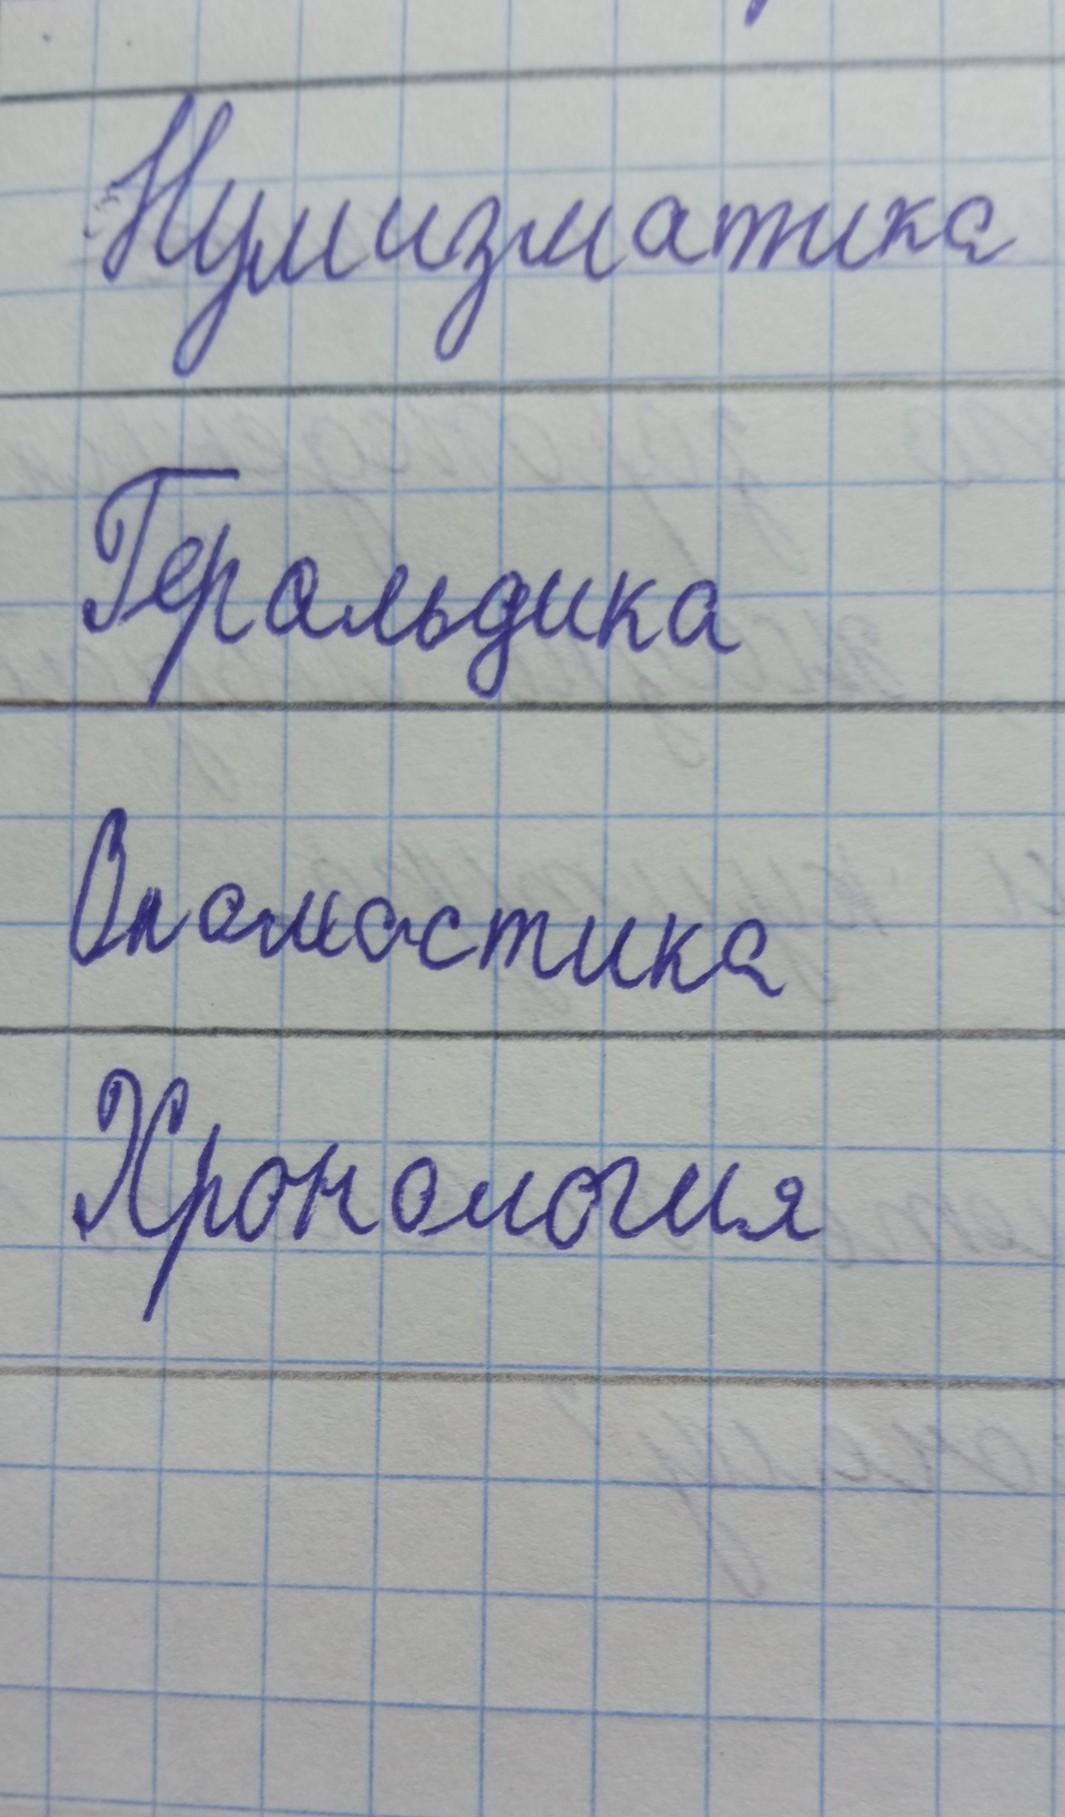 Нумизматика
Геральдика
Ономастика
Хронология